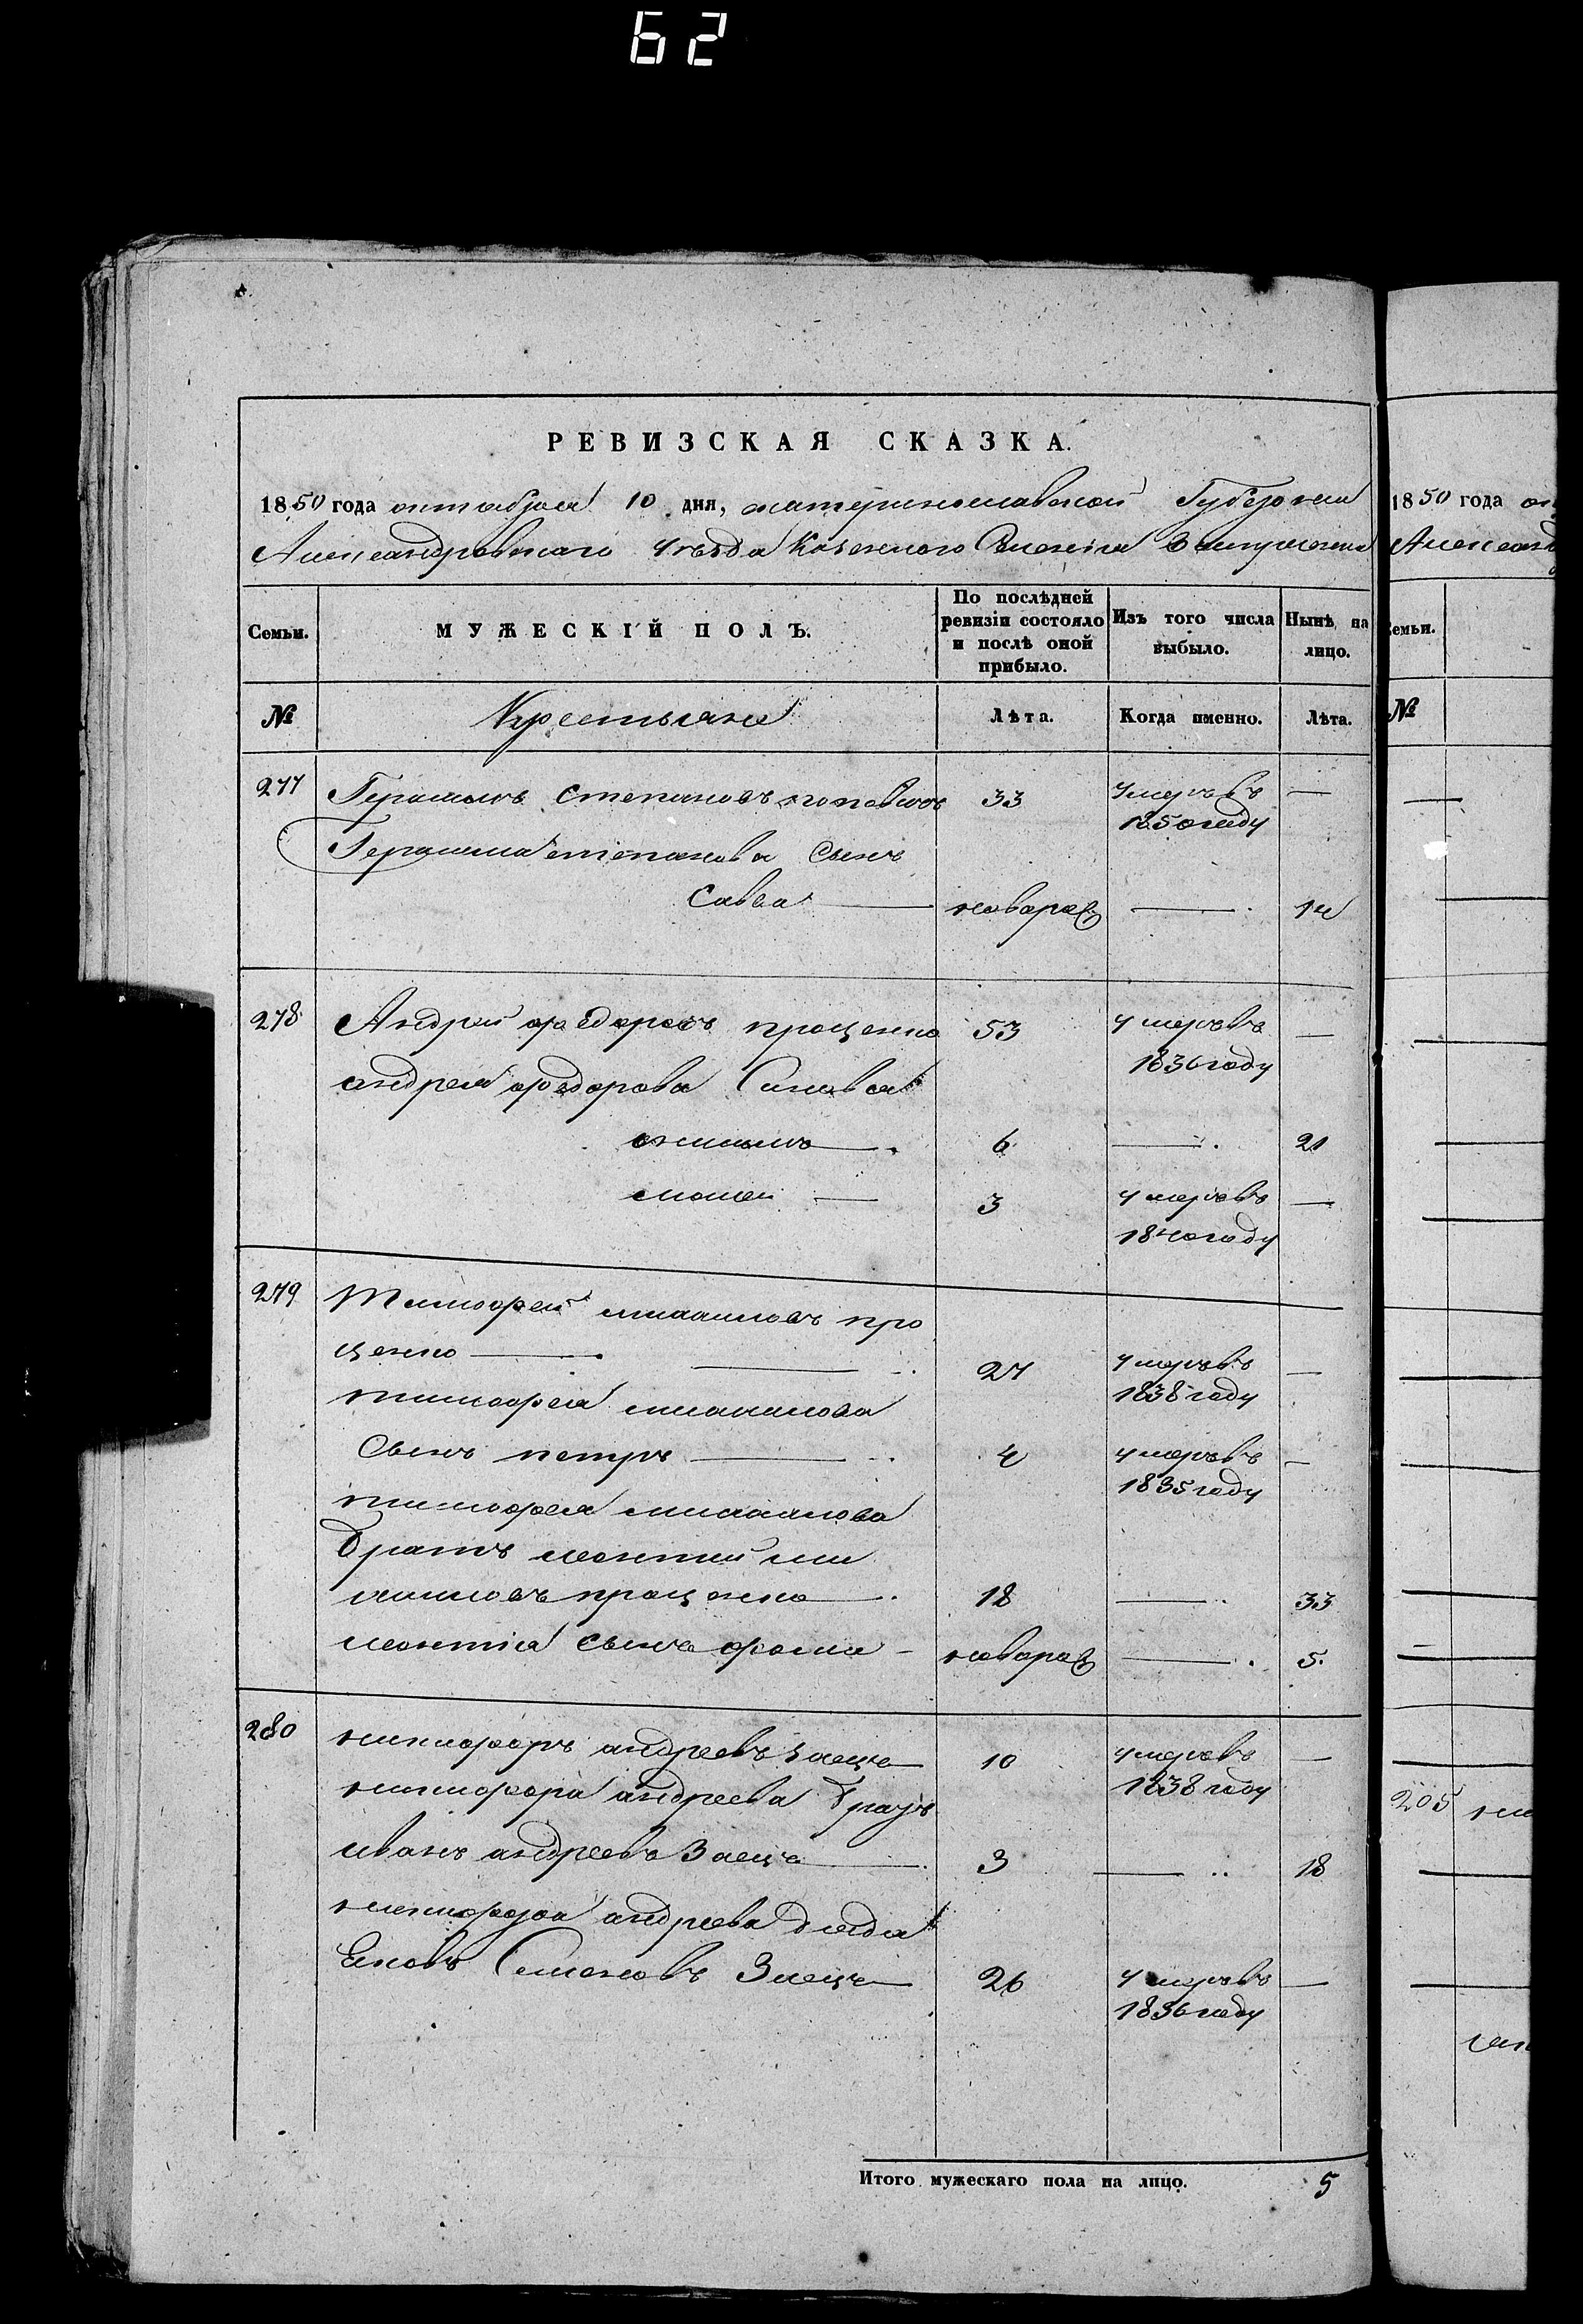 62
РЕВИЗСКАЯ СКАЗКА.
1850 года октября 10 дня, екатеринославской Губернии
Александровского уезда Казенного Селения
Семьи.
МУЖЕСКІЙ ПОЛЪ.
По послѣдней ревизіи состояло и послѣ оной прибыло.
Изъ того числа выбыло.
Нынѣ на лицо.
№
Крестьяне
Лѣта.
Когда именно.
Лѣта.
277 Герасимъ Степановъ 33 умеръ въ —
1850 году
Герасима степанова Сынъ
Савва — новорож — 14
278 Андрей федоровъ проценко 53 умеръ въ —
1836 году
андрея федорова Сыновья
6 — 21
3 умеръ въ —
1840 году
279 Тимофей михайловъ про
ценко — 27 умеръ въ —
1838 году
тимофея михайлова
Сынъ петръ — 4 умеръ въ —
1835 году
тимофея михайлова
братъ леонтий ми
хайловъ проценко — 18 — 33
леонтія сынъ фома — новорож — 5.
280 никифоръ андреевъ Заецъ 10 умеръ въ —
1838 году
никифора андреева братъ
иванъ андреевъ Заецъ — 3 — 18
никифора андреева дядя
Яковъ Семеновъ Заецъ — 26 умеръ въ —
1836 году
Итого мужескаго пола на лицо. 5
1850 года
Семьи.
№
205